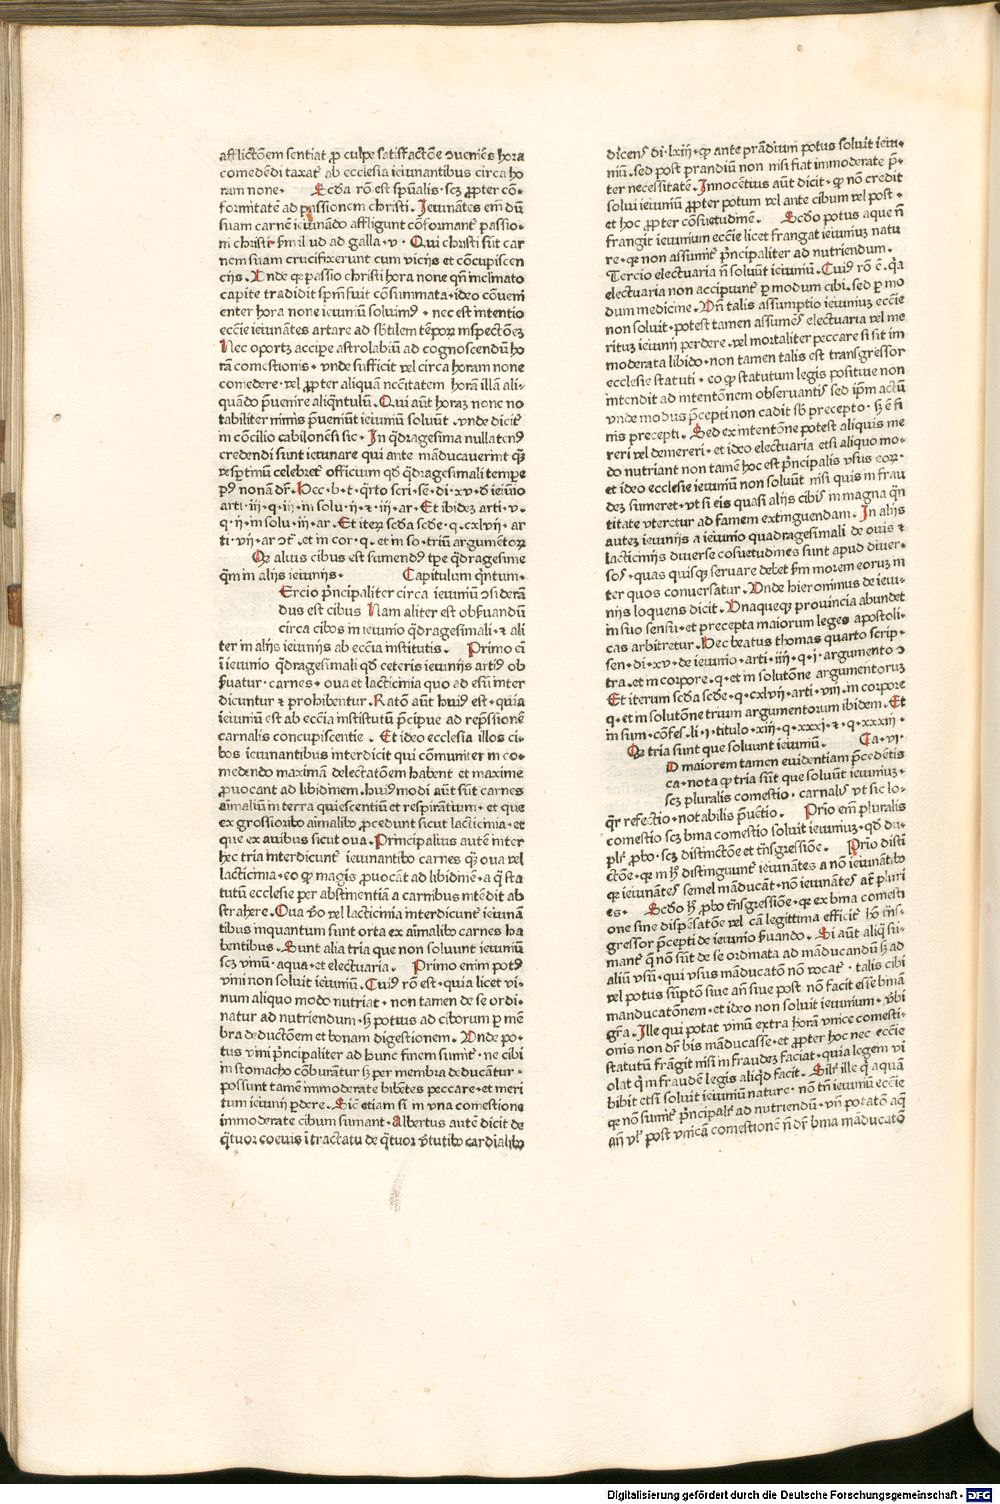 afflictōem sentiat ꝓ culpe satiſfactōe ↄueniēs hora
comedēdi taxat᷑ ab ecclesia ieiunantibus circa ho
ram none · Scd̄a rō est spūalis · scꝫ ꝓpter cō⸗
formitatē ad passionem christi. Ieiunātes em̄ dū
suam carnē ieiunādo affligunt cōformant᷑ passio⸗
ni christi · ẜm il ud ad galla · v · Qui christi sūt car
nem suam crucifixerunt cum vicijs et cōcupiscen
cijs. Vnde qꝫ passio christi hora none qn̄ inclinato
capite tradidit spm̄ fuit cōsummata · ideo cōueni
enter hora none ieiuniū soluim⁹ · nec est intentio
eccīe ieiunātes artare ad sb̄tilem tēporꝝ inspectōeꝫ
Nec oportꝫ accipe astrolabiū ad cognoscendū ho
rā comestionis · vnde sufficit vel circa horam none
comedere · vel ꝓpter aliquā nc̄citatem horā illā ali⸗
quādo p̄uenire aliq̄ntulū. Qui aūt horaꝫ none no
tabiliter nimis p̄ueniūt ieiuniū soluūt · vnde dicit᷑
in cōcilio cabilonēsi sic · In q̄dragesima nullaten⁹
credendi sunt ieiunare qui ante māducauerint qꝫ̄
vesp̱tinū celebret᷑ officium qd̄ q̄dragesimali tempe
p⁹ nonā dr̄. Hec · b · t · q̄rto scri · se · di · xv · d̄ ieiūio
arti · iij · q · iij · in solu · ij · ⁊ · iij · ar · Et ibideꝫ arti · v ·
q · ij · in solu · iij · ar. Et iteꝫ scd̄a scd̄e · q · cxlvij · ar
ti · vij · ar ↄt᷑ · et in cor · q. et in so · triū argumētorꝝ
Qꝫ alius cibus est sumend⁹ tp̄e q̄dragesime
q̄m in alijs ieiunijs · Capitulum q̄ntum ·
Ercio p̄ncipaliter circa ieiuniū ↄsiderā
dus est cibus Nam aliter est obẜuandū
circa cibos in ieiunio q̄dragesimali · ⁊ ali
ter in alijs ieiunijs ab eccīa institutis. Primo em̄
ī ieiunio q̄dragesimali qd̄ ceteris ieiunijs arti⁹ ob
ẜuatur · carnes · oua et lacticinia quo ad esū inter
dicuntur ⁊ prohibentur. Ratō aūt hui⁹ est · quia
ieiuniū est ab eccīa institutū p̄cipue ad rep̄ssionē
carnalis concupiscentie. Et ideo ecclesia illos ci⸗
bos ieiunantibus interdicit qui cōmuniter in co⸗
medendo maximā delectatōem habent et maxime
ꝓuocant ad libidinem. huiꝰmodi aūt sūt carnes
aīmaliū in terra quiescentiū et respirātium · et que
ex grossioribꝰ aīmalibꝰ ꝓcedunt sicut lacticinia · et
que ex auibus sicut oua · Principaliꝰ autē inter
hec tria interdicunt᷑ ieiunantibꝰ carnes qꝫ̄ oua vel
lacticinia · eo qꝫ magis ꝓuocāt ad libidinē · a q̄ sta
tutū ecclesie per abstinentiā a carnibus intēdit ab
strahere. Oua v̄o vel lacticinia interdicunt᷑ ieiunā
tibus inquantum sunt orta ex aīmalibꝰ carnes ha
bentibus. Sunt alia tria que non soluunt ieiuniū
scꝫ vinū · aqua · et electuaria. Primo enim potꝰ
vini non soluit ieiuniū. Cuiꝰ rō est · quia licet vi⸗
num aliquo modo nutriat · non tamen de se ordi⸗
natur ad nutriendum · sꝫ potius ad ciborum ꝑ mē
bra deductōem et bonam digestionem. Vnde po⸗
tus vini p̄ncipaliter ad hunc finem sumit᷑ · ne cibi
in stomacho cōburātur sꝫ per membra deducātur ·
possunt tamē immoderate bibētes peccare · et meri
tum ieiunij ꝑdere. Sic etiam si in vna comestione
immoderate cibum sumant · Albertus autē dicit de
q̄tuor coeuis ī tractatu de q̄tuor v̄tutibꝰ cardīalibꝰ
dicens di · lxiij · qꝫ ante prādium potus soluit ieiu⸗
niū. sed post prandiū non nisi fiat immoderate p̄⸗
ter necessitatē. Innocētius aūt dicit · qꝫ nō credit
solui ieiuniū ꝓpter potum vel ante cibum vel post ·
et hoc ꝓpter cōsuetudinē. Scd̄o potus aque n̄
frangit ieiunium eccīe licet frangat ieiuniuꝫ natu
re · qꝫ non assumit᷑ p̄ncipaliter ad nutriendum.
Tercio electuaria n̄ soluūt ieiuniū. Cuiꝰ rō ē · q̄a
electuaria non accipiunt᷑ ꝑ modum cibi · sed ꝑ mo
dum medicine. Vn̄ talis assumptio ieiuniuꝫ eccīe
non soluit · potest tamen assumēs electuaria vel me
rituꝫ ieiunij perdere · vel mortaliter peccare si sit im
moderata libido · non tamen talis est transgressor
ecclesie statuti · eo qꝫ statutum legis positiue non
intendit ad intentōnem obseruantis sed ip̄m actū
vnde modus p̄cepti non cadit sb̄ precepto · sꝫ ē fi
nis precepti. Sed ex intentōne potest aliquis me
reri vel demereri · et ideo electuaria etsi aliquo mo⸗
do nutriant non tamē hoc est p̄ncipalis vsus eorꝝ ·
et ideo ecclesie ieiuniū non soluūt nisi quis in frau
deꝫ sumeret · vt si eis quasi alijs cibis in magna q̄n
titate vteretur ad famem extinguendam. In alijs
auteꝫ ieiunijs a ieiunio quadragesimali de ouis ⁊
lacticinijs diuerse cōsuetudines sunt apud diuer⸗
sos · quas quisqꝫ seruare debet ẜm morem eoruꝫ in
ter quos conuersatur. Vnde hieronimus de ieiu⸗
nijs loquens dicit. Vnaqueqꝫ prouincia abundet
in suo sensu · et precepta maiorum leges apostoli⸗
cas arbitretur. Hec beatus thomas quarto scrip⸗
sen · di · xv · de ieiunio · arti · iiij · q · i · argumento ↄ
tra · et in corpore · q · et in solutōne argumentoruꝫ
Et iterum scd̄a scd̄e · q · cxlvij · arti · viij · in corpore
q · et in solutōne trium argumentorum ibidem. Et
in sum · cōfes · li · i · titulo · xiij · q · xxxi · ⁊ · q · xxxiij ·
Qꝫ tria sunt que soluunt ieiuniū. Ca · vi ·
D maiorem tamen euidentiam p̄cedētis
ca · nota qꝫ tria sūt que soluūt ieiuniuꝫ ·
scꝫ pluralis comestio · carnalis vt sic lo⸗
q̄r refectio · notabilis p̄uētio. Prīo em̄ pluralis
comestio scꝫ bina comestio soluit ieiuniuꝫ · qd̄ du⸗
pl᷑r ꝓbo · scꝫ distinctōe et trn̄sgressiōe. Prīo disti
ctōe · qꝫ in hꝰ distinguunt᷑ ieiunātes a nō ieiunātibꝰ
qꝫ ieiunātes semel māducāt · nō ieiunātes at᷑ pluri
es · Scd̄o hꝰ ꝓbo trn̄sgressiōe · qꝫ ex bina comesti
one sine dispēsatōe vel cā legittima efficit᷑ hō trn̄s⸗
gressor p̄cepti de ieiunio ẜuando. Si aūt aliq̄ su⸗
mant᷑ q̄ nō sūt de se ordinata ad māducandū sꝫ ad
aliū vsū · qui vsus māducatō nō vocat᷑ · talis cibi
vel potus sūptō siue an̄ siue post nō facit esse binā
manducatōnem · et ideo non soluit ieiunium · v̄bi
gr̄a. Ille qui potat vinū extra horā vnice comesti⸗
onis non dr̄ bis māducasse · et ꝓpter hoc nec eccīe
statutū frāgit nisi in fraudeꝫ faciat · quia legem vi
olat q̄ in fraudē legis aliqd̄ facit. Silr̄ ille q̄ aquā
bibit etsi soluit ieiuniū nature · nō tn̄ ieiuniū eccīe
qꝫ nō sumit᷑ p̄ncipalr̄ ad nutriendū · vn̄ potatō aq̄
an̄ vl᷑ post vnicā comestionē n̄ dr̄ bina māducatō
Digitalisierung gefördert durch die Deutsche Forschungsgemeinschaft - DFG